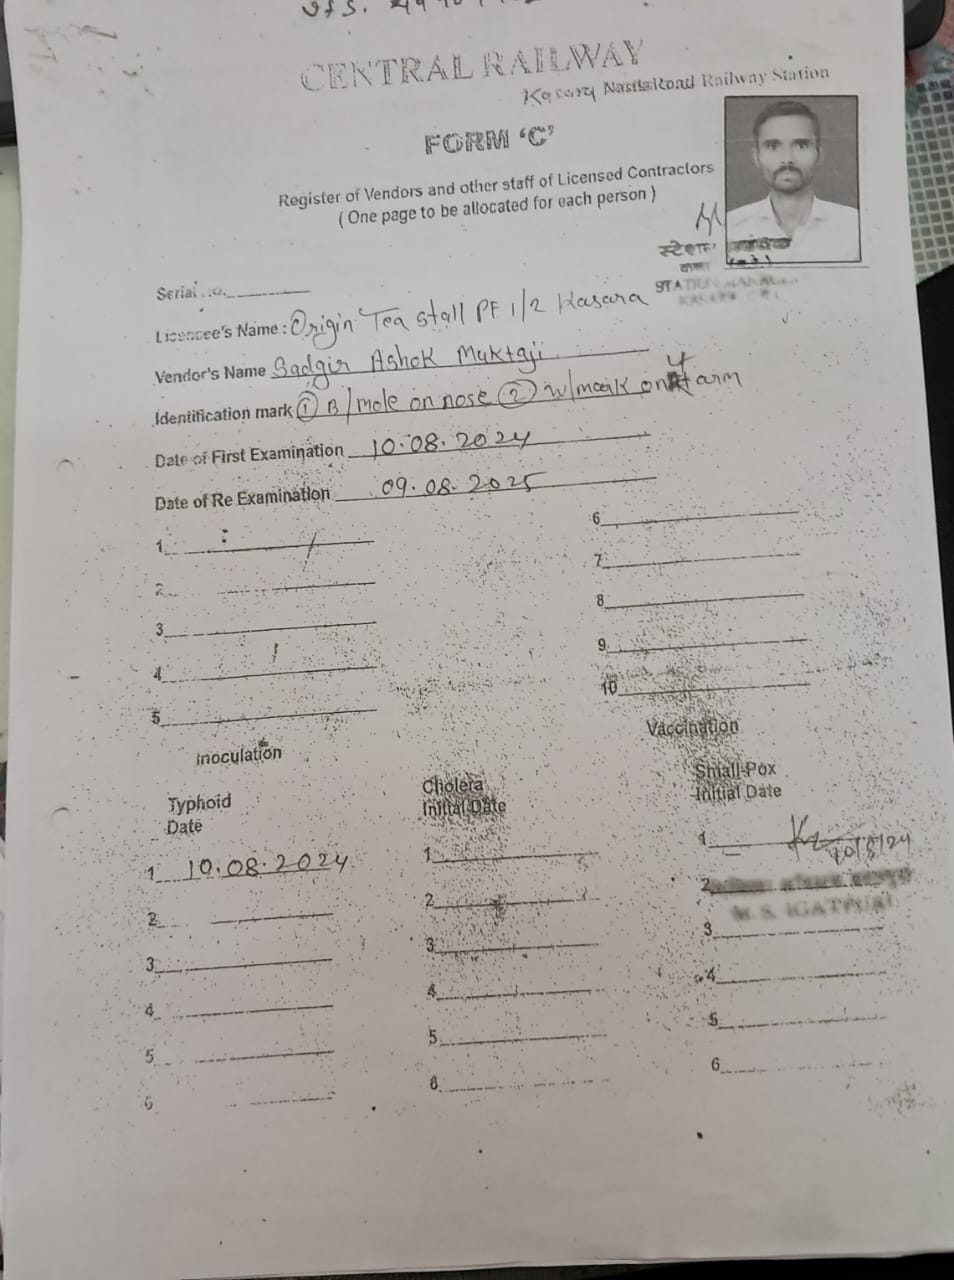 CENTRAL RAILWAY
Kasara Nasik Road Railway Station
FORM 'C'
Register of Vendors and other staff of Licensed Contractors
( One page to be allocated for each person )
स्टेशन
STATION MANAGER
Serial No.
Licencee's Name : Origin Tea stall PF 1/2 Kasara
Vendor's Name Sadgir Ashok Muktaji
Identification mark ① B/mole on nose ② w/mark on arm
Date of First Examination 10.08.2024
Date of Re Examination 09.08.2025
1 6
2 7
3 8
4 9
5 10
Inoculation Vaccination
Typhoid Cholera Small-Pox
Date Initial Date Initial Date
1 10.08.2024 1 1 10/8/24
2 2 2
M. S. IGATPURI
3 3 3
4 4 4
5 5 5
6 6 6